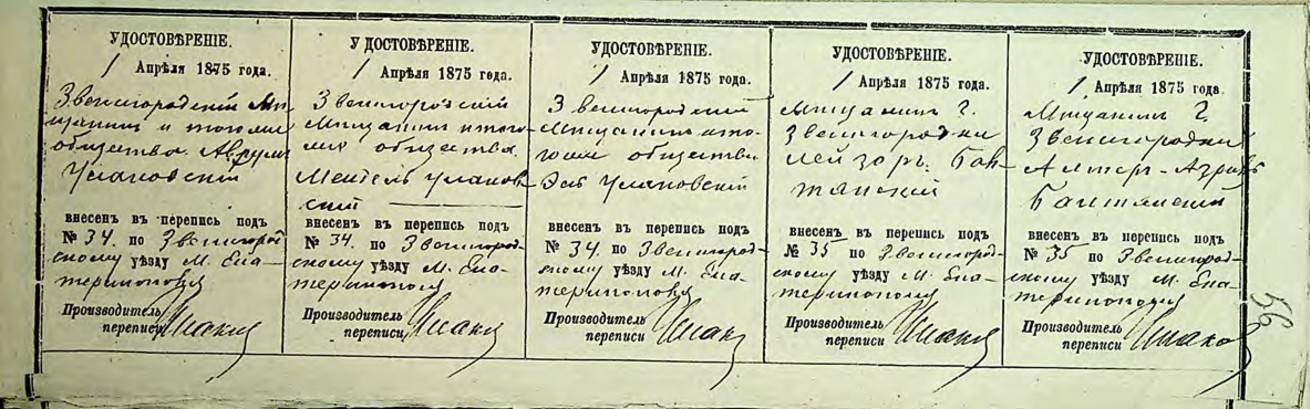 УДОСТОВѢРЕНІЕ.
1 Апрѣля 1875 года.
Звенигородскій Мѣ-
щанинъ и того же
общества Аврумъ
Улановскій
внесенъ въ перепись подъ
№ 34. по Звенигород-
скому уѣзду м. Ека-
теринополя
Производитель
переписи
УДОСТОВѢРЕНІЕ.
1 Апрѣля 1875 года.
Звенигородскій
Мѣщанинъ и того-
же общества
Ментель Уланов-
скій
внесенъ въ перепись подъ
№ 34. по Звенигород-
скому уѣзду м. Ека-
теринополя
Производитель
переписи
УДОСТОВѢРЕНІЕ.
1 Апрѣля 1875 года.
Звенигородскій
Мѣщанинъ и то-
гоже общества
Улановскій
внесенъ въ перепись подъ
№ 34. по Звенигород-
скому уѣзду м. Ека-
теринополя
Производитель
переписи
УДОСТОВѢРЕНІЕ.
1 Апрѣля 1875 года.
Мѣщанинъ г.
Звенигородки
Лейзоръ Бан-
танскій
внесенъ въ перепись подъ
№ 35 по Звенигород-
скому уѣзду м. Ека-
теринополя
Производитель
переписи
УДОСТОВѢРЕНІЕ.
1 Апрѣля 1875 года.
Мѣщанинъ г.
Звенигородки
Алтеръ-
Бантанскій
внесенъ въ перепись подъ
№ 35 по Звенигород-
скому уѣзду м. Ека-
теринополя
Производитель
переписи
56